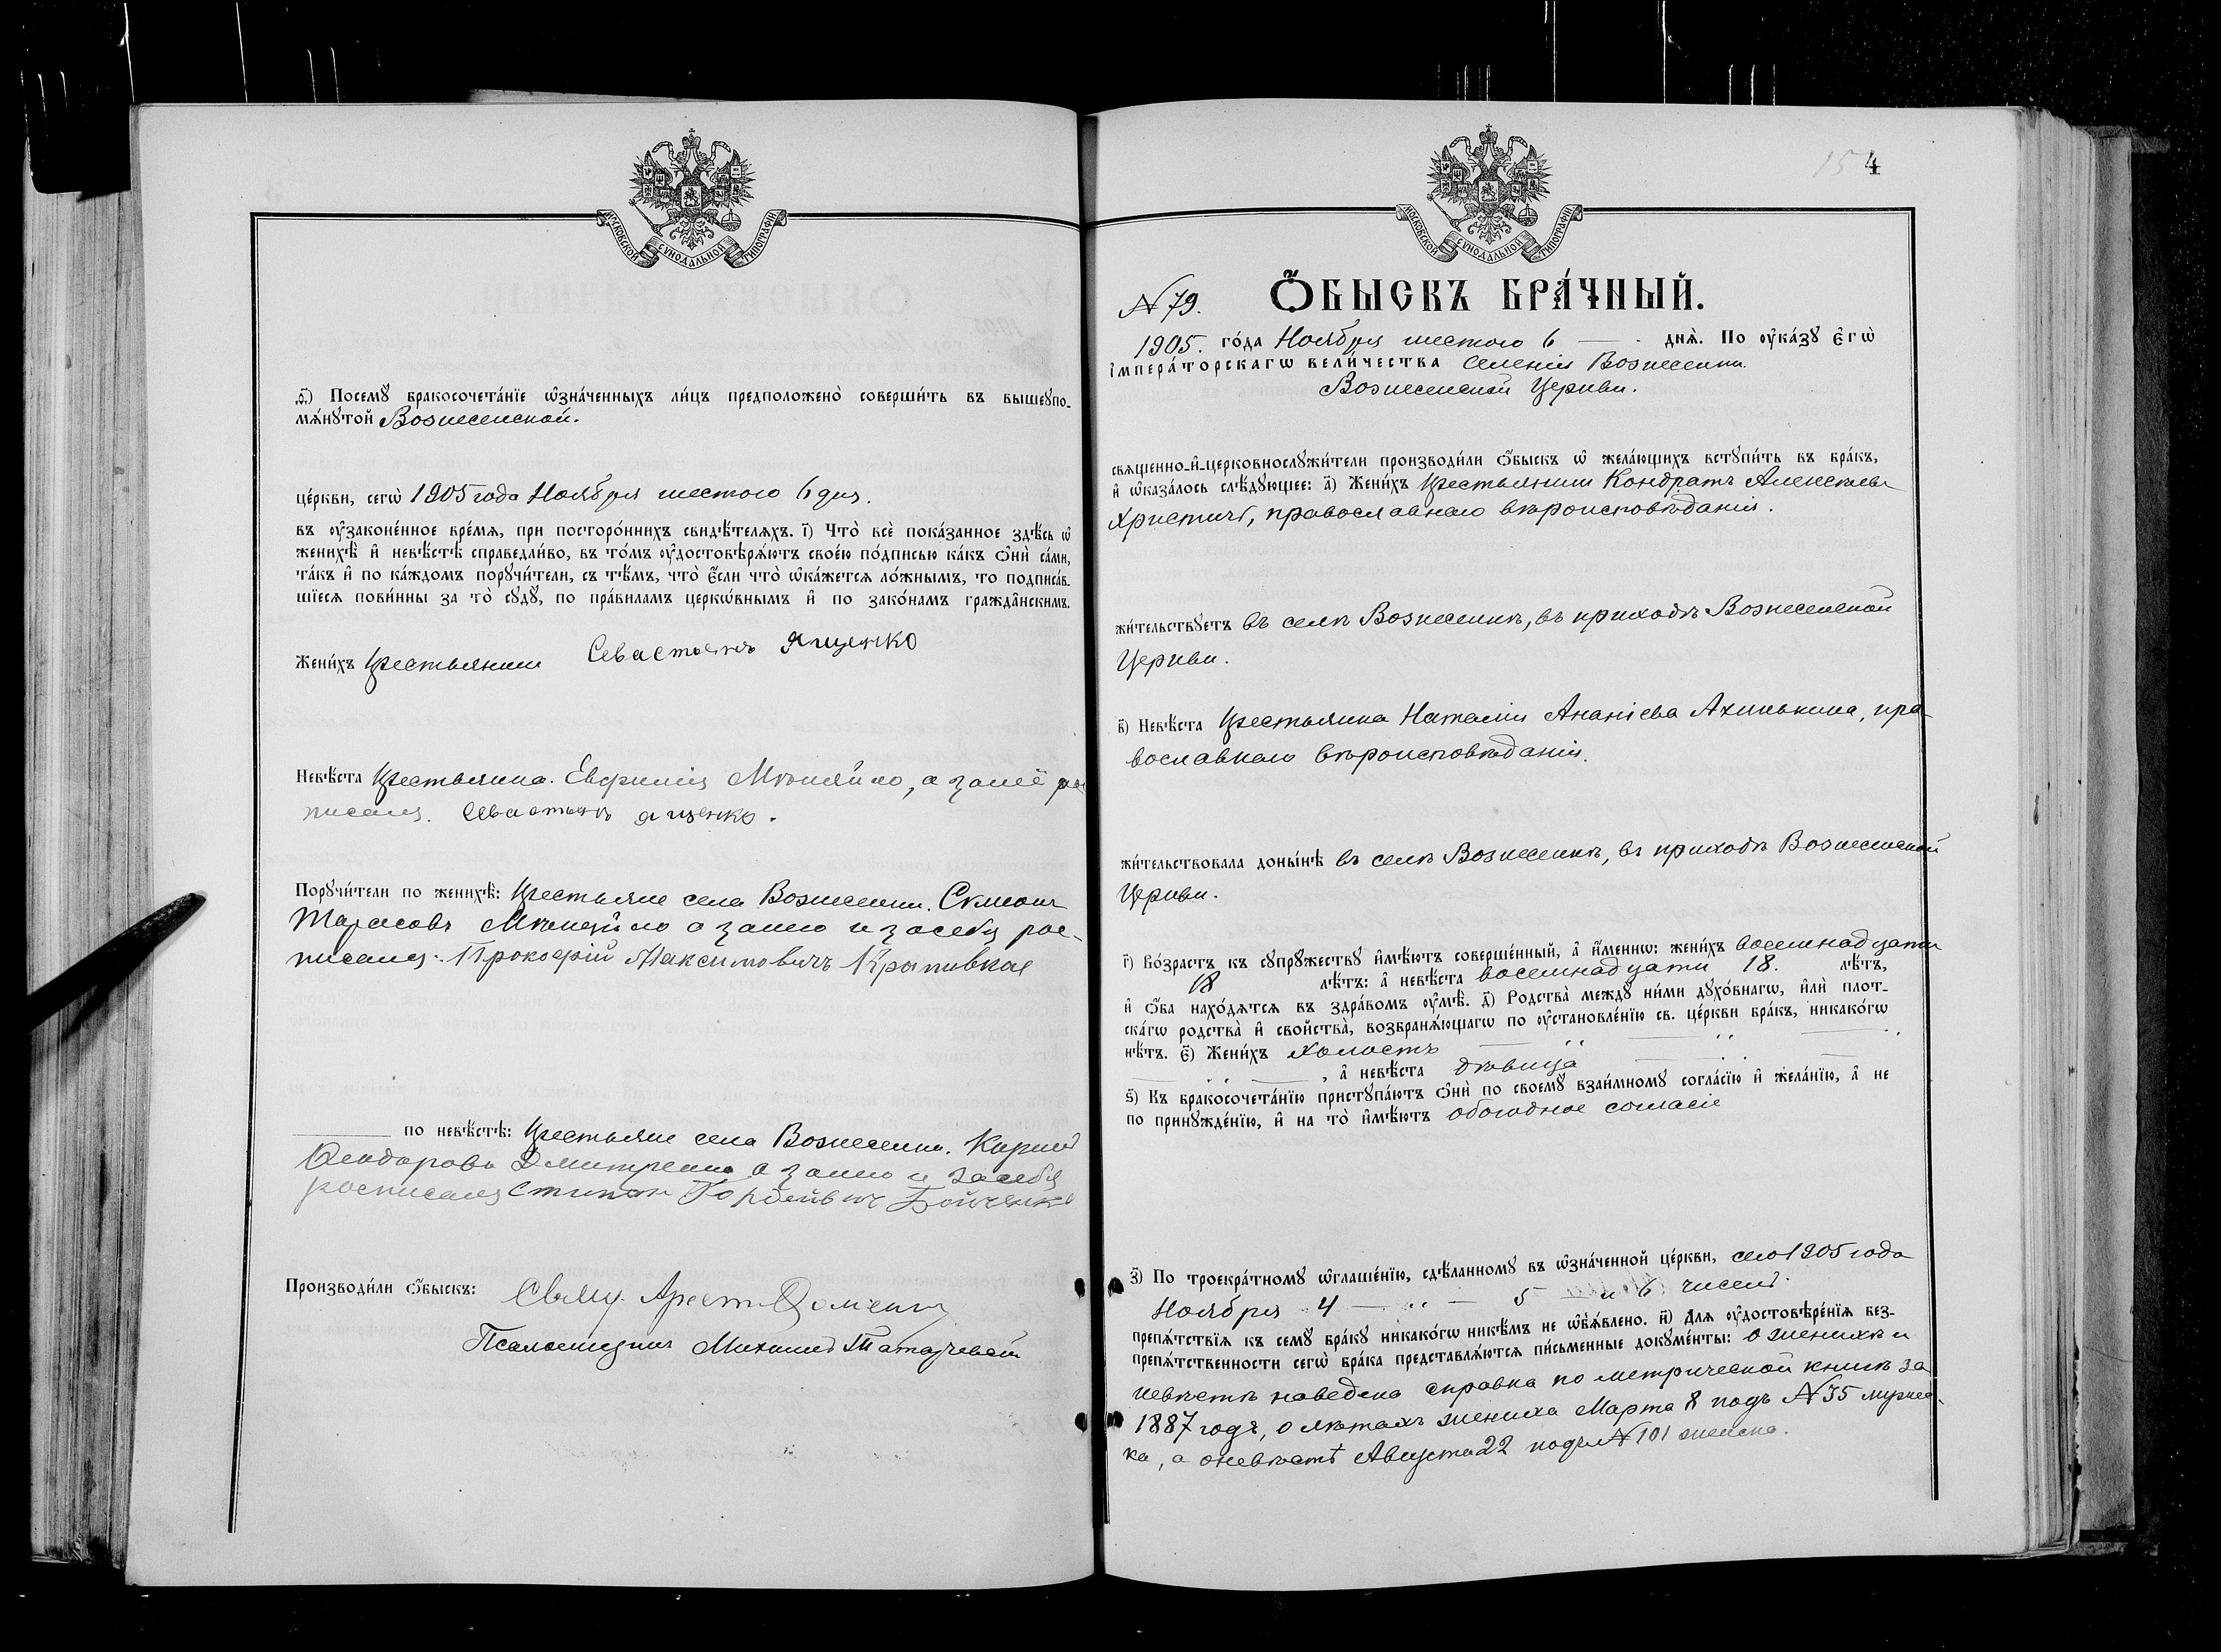 МОСКОВСКОЙ СѴНОДАЛЬНОЙ ТИПОГРАФІИ
ѳ҃) Посемꙋ бракосочета́нїе ѡ҆зна́ченныхъ ли́цъ предположено̀ соверши́ть въ вышеꙋпо-
мѧ́нꙋтой Вознесенской.
це́ркви, сегѡ̀ 1905 года Ноября шестого 6 дня.
въ ᲂу҆законе́нное вре́мѧ, при посторо́ннихъ свидѣ́телѧхъ. і҃) Что̀ всѐ пока́занное здѣ́сь ѡ҆
женихѣ̀ и҆ невѣ́стѣ справедли́во, въ то́мъ ᲂу҆достовѣрѧ́ютъ свое́ю по́дписью ка́къ ѻ҆нѝ са́ми,
та́къ и҆ по ка́ждомъ порꙋчи́тели, съ тѣ́мъ, что̀ є҆́сли что̀ ѡ҆ка́жетсѧ ло́жнымъ, то подписа́в-
шїесѧ пови́нны за то̀ сꙋдꙋ̀, по пра́виламъ церкѡ́внымъ и҆ по зако́намъ гражда̂нскимъ.
Жени́хъ Крестьянин Севастьянъ Ященко
Невѣ́ста Крестьянка. Евфимія Мѣняйло, а за неё рос
писался. Севастьянъ ященко.
Порꙋчи́тели по женихѣ̀: Крестьяне села Вознесенки. Сѵмеонъ
Тарасовъ Мѣняйло а занего и засебя рос-
писался. Прокофій Максимовичъ Крапивка
по невѣ́стѣ: Крестьяне села Вознесенки. Кирилъ
Феодоровъ Дмитренко а занего и засебя
росписался Степан Гордеевич Бойченко
Производи́ли ѻ҆́быскъ: Свящ.
Псаломщикъ Михаилъ
МОСКОВСКОЙ СѴНОДАЛЬНОЙ ТИПОГРАФІИ
154
N 79. Ѻ҆́БЫСКЪ БРА́ЧНЫЙ.
1905. го́да Ноября шестого 6 — днѧ̀. По ᲂу҆ка́зꙋ є҆гѡ̀
і҆мпера́торскагѡ вели́чества Селенія Вознесенки.
Вознесенской Церкви.
свѧщенно-и҆-церковнослꙋжи́тели производи́ли ѻ҆́быскъ ѡ҆ жела́ющихъ встꙋпи́ть въ бра́къ,
и҆ ѡ҆каза́лось слѣ́дꙋющее: а҃) Жени́хъ Крестьянин Кондратъ Алексіевъ
Христичъ, православнаго вѣроисповѣданія.
жи́тельствꙋетъ въ селѣ Вознесенкѣ, въ приходѣ Вознесенской
Церкви.
в҃) Невѣ́ста Крестьянка Наталія Ананіева Ахинькина, пра
вославнаго вѣроисповѣданія.
жи́тельствовала доны́нѣ въ селѣ Вознесенкѣ, въ приходѣ Вознесенской
Церкви.
г҃) Во́зрастъ къ сꙋпрꙋ́жествꙋ и҆мѣ́ютъ соверше́нный, а҆ и҆́меннѡ: жени́хъ восемнадцати
18 лѣ́тъ: а҆ невѣ́ста восемнадцати 18. лѣ́тъ,
и҆ ѻ҆́ба нахо́дѧтсѧ въ здра́вомъ ᲂу҆мѣ̀. д҃) Родства̀ междꙋ̀ ни́ми дꙋхо́внагѡ, и҆лѝ плот-
ска́гѡ родства̀ и҆ свойства̀, возбранѧ́ющагѡ по ᲂу҆становле́нїю св. це́ркви бра́къ, никако́гѡ
нѣ́тъ. є҃) Жени́хъ холостъ
, а҆ невѣ́ста дѣвица
ѕ҃) Къ бракосочета́нїю пристꙋпа́ютъ ѻ҆нѝ по своемꙋ̀ взаи́мномꙋ согла́сїю и҆ жела́нїю, а҆ не
по принꙋжде́нїю, и҆ на то̀ и҆мѣ́ютъ обоюдное согласіе
з҃) По троекра́тномꙋ ѡ҆глаше́нїю, сдѣ́ланномꙋ въ ѡ҆зна́ченной це́ркви, сего 1905 года
Ноября 4 — 5 — и 6 числъ.
препѧ́тствїѧ къ семꙋ̀ бра́кꙋ никако́гѡ никѣ́мъ не ѡ҆б̾ѧ́влено. и҃) Длѧ̀ ᲂу҆достовѣре́нїѧ без-
препѧ́тственности сегѡ̀ бра́ка представлѧ́ютсѧ пи́сьменные докꙋме́нты: о женихѣ и
невѣстѣ наведена справка по метрической книгѣ за
1887 годъ, о лѣтахъ жениха Марта 8 подъ N 35 мужес-
ка, а оневѣстѣ Августа 22 подъ N 101 женска.